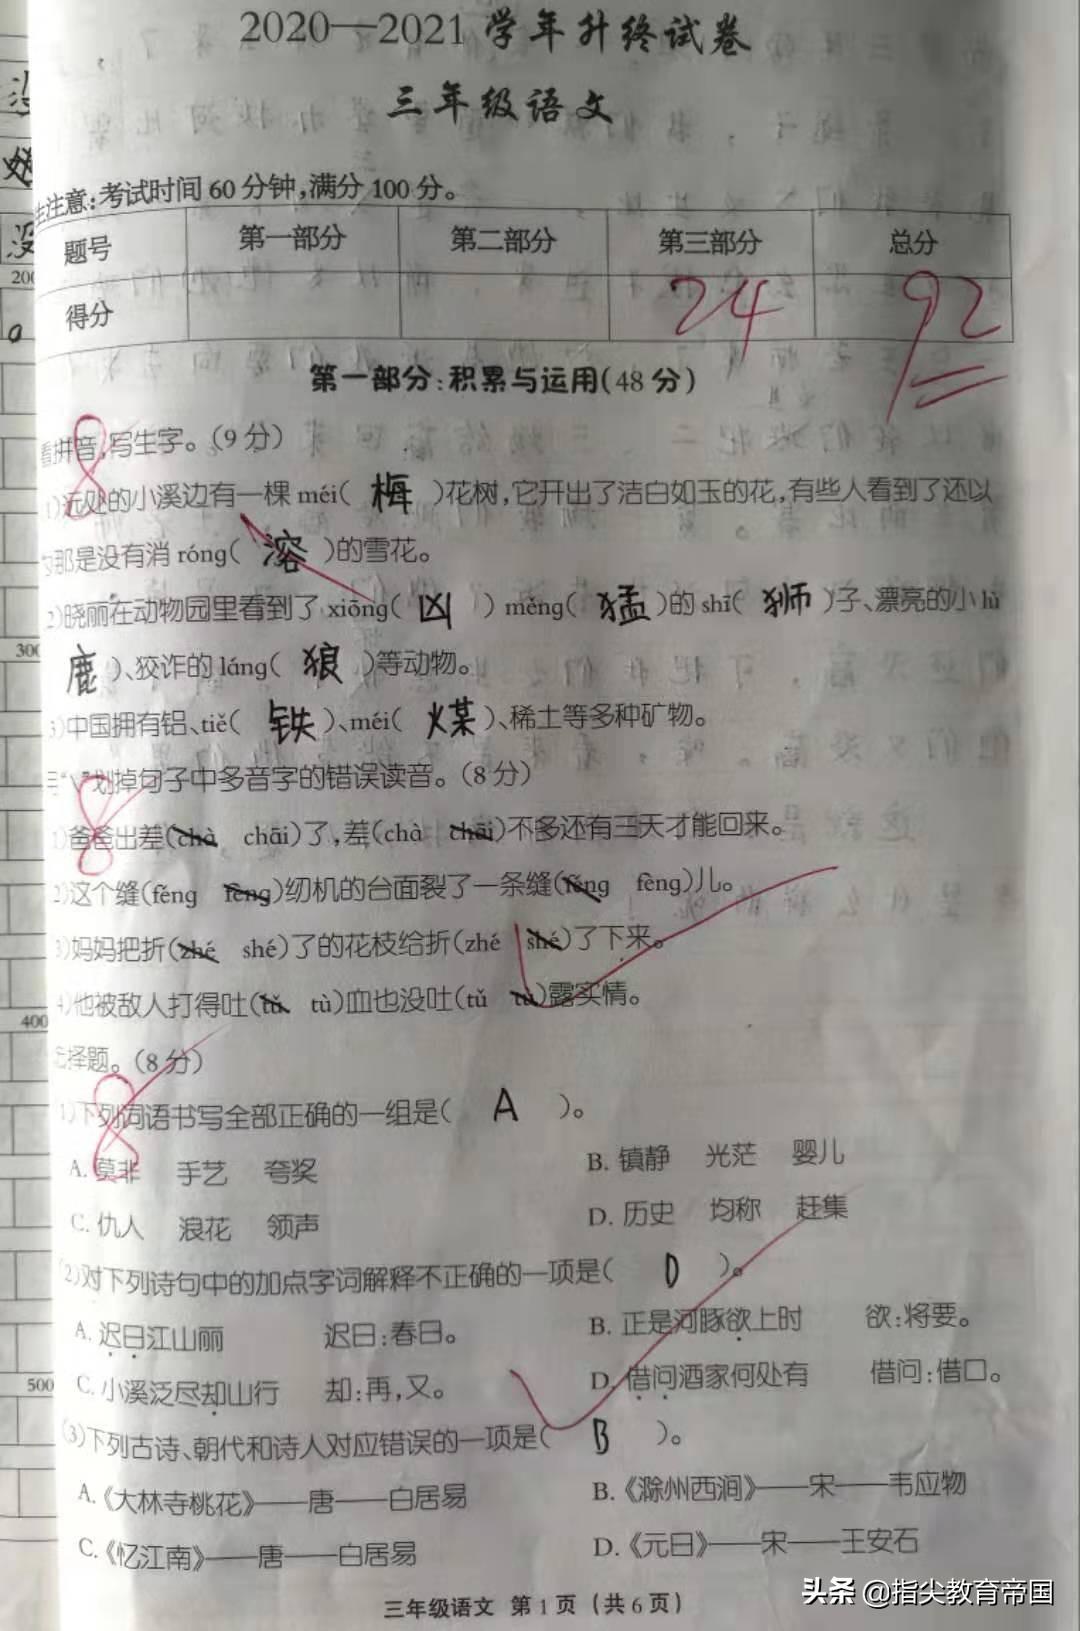 2020—2021学年升终试卷
三年级语文
注意:考试时间60分钟,满分100分。
题号 第一部分 第二部分 第三部分 总分
得分 24 92
第一部分:积累与运用(48分)
看拼音,写生字。(9分)
8
1)远处的小溪边有一棵méi( 梅 )花树,它开出了洁白如玉的花,有些人看到了还以
那是没有消róng( 溶 )的雪花。
2)晓丽在动物园里看到了xiōng( 凶 )měng( 猛 )的shī( 狮 )子、漂亮的小lù
鹿 )、狡诈的láng( 狼 )等动物。
)中国拥有铝、tiě( 铁 )、méi( 煤 )、稀土等多种矿物。
“\”划掉句子中多音字的错误读音。(8分)
8
1)爸爸出差(chà chāi)了,差(chà chāi)不多还有三天才能回来。
2)这个缝(féng fèng)纫机的台面裂了一条缝(féng fèng)儿。
3)妈妈把折(zhé shé)了的花枝给折(zhé shé)了下来。
4)他被敌人打得吐(tǔ tù)血也没吐(tǔ tù)露实情。
择题。(8分)
8
1)下列词语书写全部正确的一组是( A )。
A. 莫非 手艺 夸奖 B. 镇静 光茫 婴儿
C. 仇人 浪花 领声 D. 历史 均称 赶集
(2)对下列诗句中的加点字词解释不正确的一项是( D )。
A. 迟日江山丽 迟日:春日。 B. 正是河豚欲上时 欲:将要。
C. 小溪泛尽却山行 却:再,又。 D. 借问酒家何处有 借问:借口。
(3)下列古诗、朝代和诗人对应错误的一项是( B )。
A.《大林寺桃花》——唐——白居易 B.《滁州西涧》——宋——韦应物
C.《忆江南》——唐——白居易 D.《元日》——宋——王安石
三年级语文 第1页(共6页)
头条 @指尖教育帝国
200
300
400
500